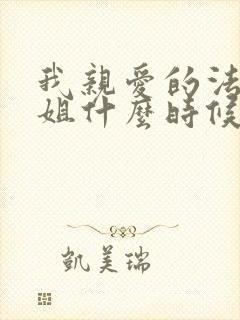 我親愛的法
姐什麼時候
凱美瑞